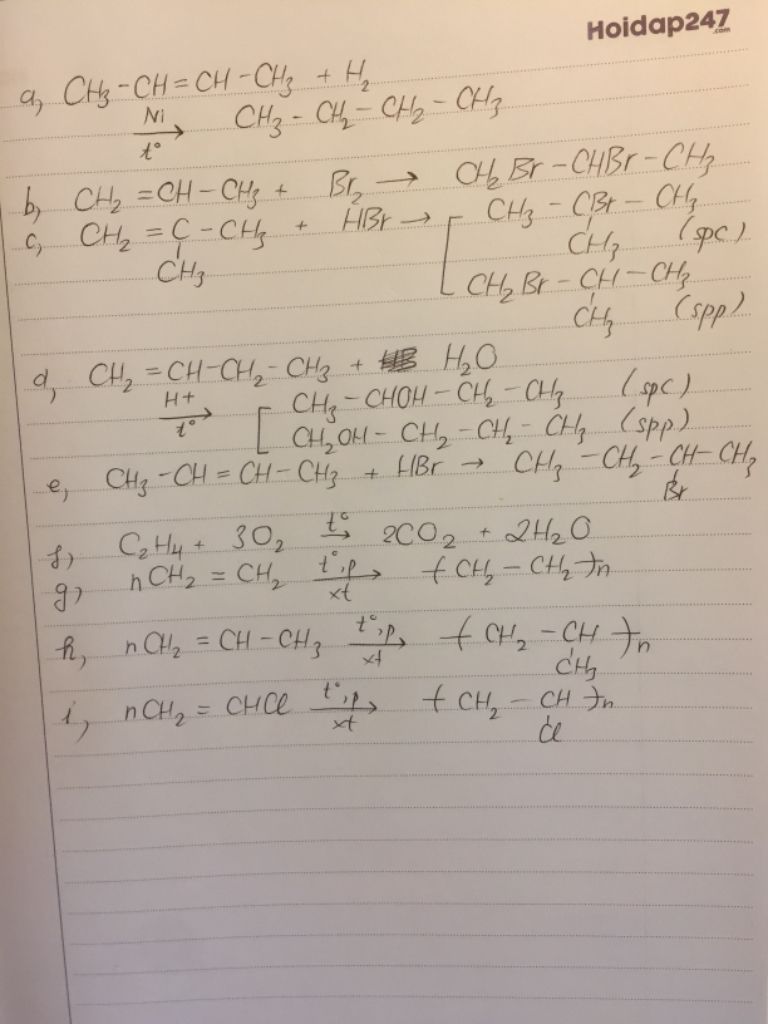 Hoidap247
.com
a, CH₃-CH=CH-CH₃ + H₂
Ni
t° → CH₃-CH₂-CH₂-CH₃
b, CH₂=CH-CH₃ + Br₂ → CH₂Br-CHBr-CH₃
c, CH₂=C-CH₃ + HBr → [ CH₃-CBr-CH₃
CH₃ CH₃ (spc)
CH₂Br-CH-CH₃
CH₃ (spp)
d, CH₂=CH-CH₂-CH₃ + H₂O
H+
t° → [ CH₃-CHOH-CH₂-CH₃ (spc)
CH₂OH-CH₂-CH₂-CH₃ (spp)
e, CH₃-CH=CH-CH₃ + HBr → CH₃-CH₂-CH-CH₃
Br
f, C₂H₄ + 3O₂ t° → 2CO₂ + 2H₂O
g, nCH₂=CH₂ t°,p → xt (CH₂-CH₂)n
h, nCH₂=CH-CH₃ t°,p → xt (CH₂-CH)n
CH₃
i, nCH₂=CHCl t°,p → xt (CH₂-CH)n
Cl